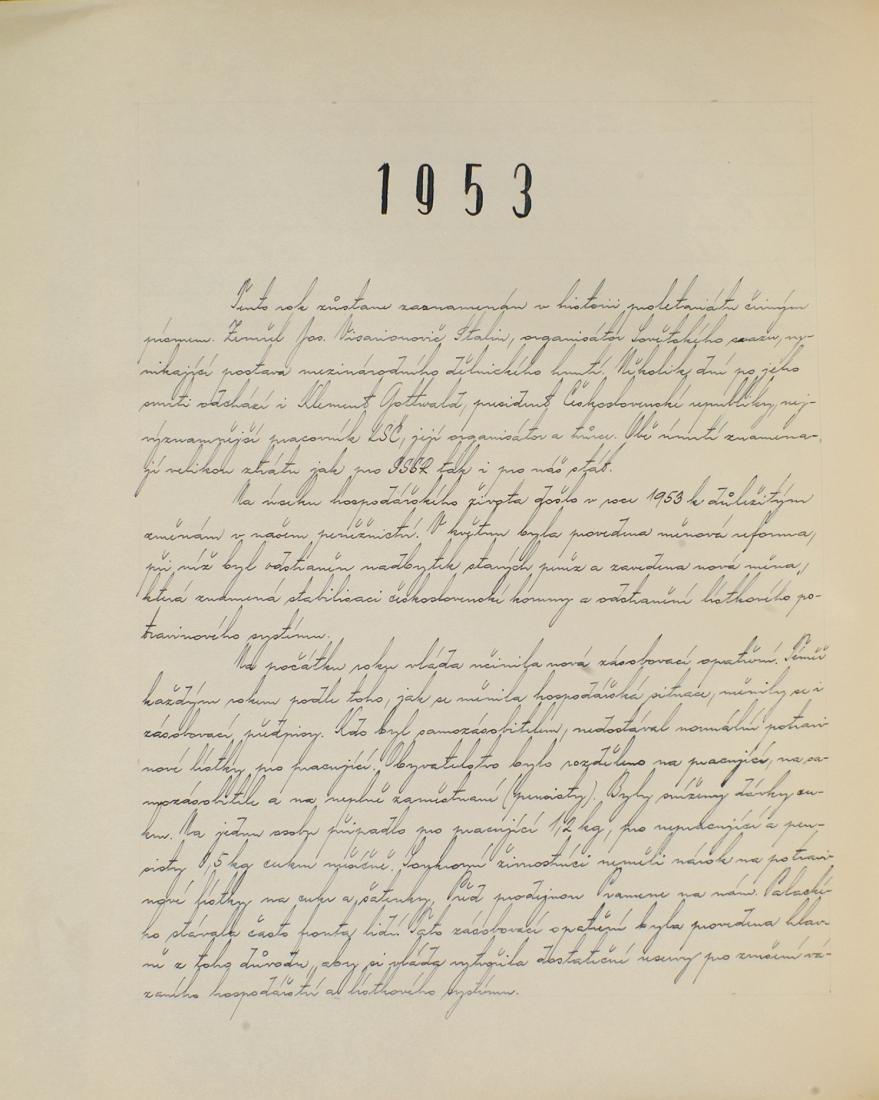 1953
Tento rok zůstane zaznamenán v historii proletariátu černým
písmem. Zemřel Jos. Visarionovič Stalin, organisátor Sovětského svazu, vy-
nikající postava mezinárodního dělnického hnutí. Několik dní po jeho
smrti odchází i Klement Gottwald, president Československé republiky, nej-
významnější pracovník KSČ, její organisátor a tvůrce. Obě úmrtí znamena-
jí velikou ztrátu jak pro SSSR tak i pro náš stát.
Na úseku hospodářského života došlo v roce 1953 k důležitým
změnám v našem peněžnictví. V květnu byla provedena měnová reforma,
při níž byl odstraněn nadbytek starých peněz a zavedena nová měna,
která znamená stabilisaci československé koruny a odstranění lístkového po-
travinového systému.
Na počátku roku vláda učinila nová zásobovací opatření. Téměř
každým rokem podle toho, jak se měnila hospodářská situace, měnily se i
zásobovací předpisy. Kdo byl samozásobitelem, nedostával normální potravi-
nové lístky pro pracující. Obyvatelstvo bylo rozděleno na pracující, na sa-
mozásobitele a na neplně zaměstnané (pensisty). Byly sníženy dávky cu-
kru. Na jednu osobu připadlo pro pracující 1,2 kg, pro nepracující a pen-
sisty 0,5 kg cukru měsíčně. Soukromí živnostníci neměli nárok na potravi-
nové lístky, na cukr a šatenky. Před prodejnou Pramene na nám. Palacké-
ho stávala často fronta lidí. Tato zásobovací opatření byla provedena hlav-
ně z toho důvodu, aby si vláda vytvořila dostatečné reservy pro zrušení vá-
zaného hospodářství a lístkového systému.